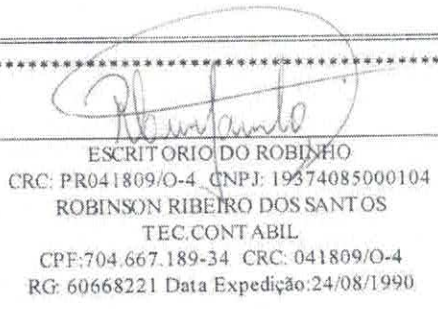 ESCRITORIO DO ROBINHO
CRC: PR041809/O-4 CNPJ: 19374085000104
ROBINSON RIBEIRO DOS SANTOS
TEC.CONTABIL
CPF:704.667.189-34 CRC: 041809/O-4
RG: 60668221 Data Expedição:24/08/1990